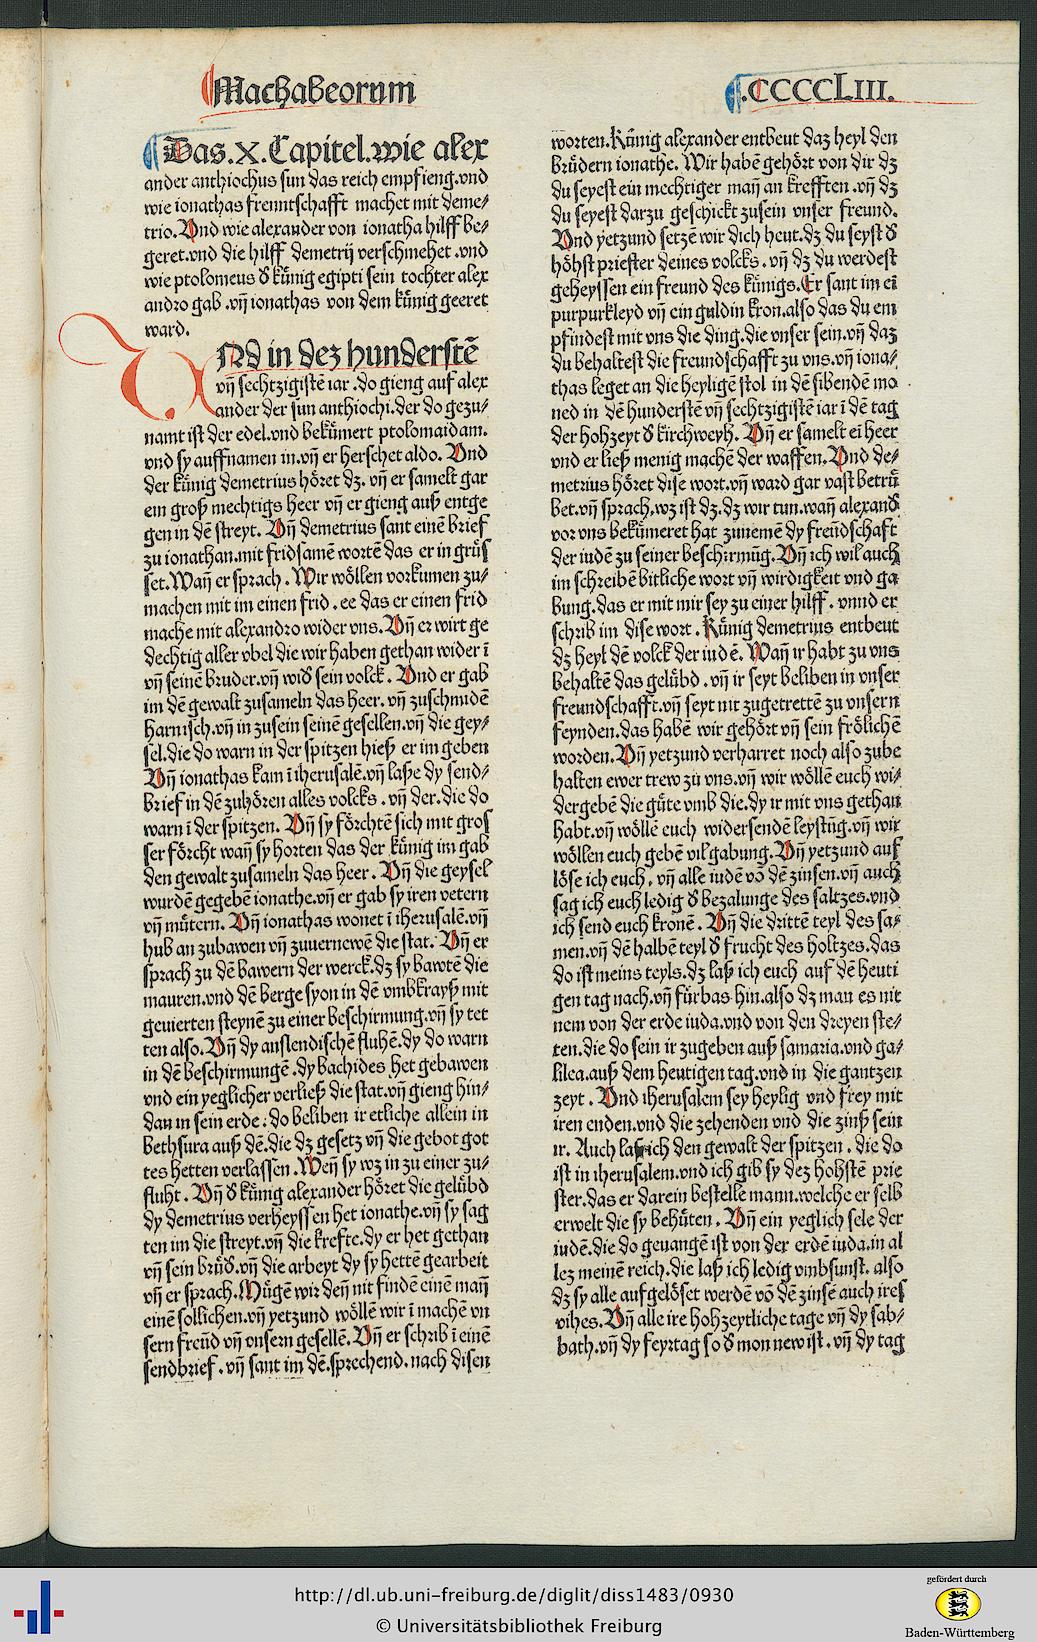 Machabeorum
.CCCCLIII.
Das.X.Capitel.wie alex
ander anthiochus sun das reich empfieng.vnd
wie ionathas frenntschafft machet mit deme⸗
trio.Vnd wie alexander von ionatha hilff be⸗
geret.vnd die hilff demetrij verschmehet.vnd
wie ptolomeus d̕ kűnig egipti sein tochter alex
andro gab.vñ ionathas von dem kűnig geeret
ward.
Vnd in dez hunderstē
vñ sechtzigistē iar.do gieng auf alex
ander der sun anthiochi.der do gezu⸗
namt ist der edel.vnd bekűmert ptolomaidam.
vnd sy auffnamen in.vñ er herschet aldo. Vnd
der kűnig demetrius hőret dz. vñ er samelt gar
ein groß mechtigs heer vñ er gieng auß entge
gen in dē streyt. Vñ demetrius sant einē brief
zu ionathan.mit fridsamē wortē das er in grűs
set.Wañ er sprach. Wir wőllen vorkumen zu⸗
machen mit im einen frid.ee das er einen frid
mache mit alexandro wider vns. Vñ er wirt ge
dechtig aller vbel die wir haben gethan wider ī
vñ seinē bruder.vñ wid̕ sein volck. Vnd er gab
im dē gewalt zusameln das heer.vñ zuschmidē
harnisch.vñ in zusein seinē gesellen.vñ die gey⸗
sel.die do warn in der spitzen hieß er im geben
Vñ ionathas kam ī iherusalē.vñ laße dy send⸗
brief in dē zuhőren alles volcks.vñ der.die do
warn ī der spitzen. Vñ sy főrchtē sich mit gros
ser főrcht wañ sy horten das der kűnig im gab
den gewalt zusameln das heer. Vñ die geysel
wurdē gegebē ionathe.vñ er gab sy iren vetern
vñ műtern. Vñ ionathas wonet ī iherusalē.vñ
hub an zubawen vñ zuuernewē die stat. Vñ er
sprach zu dē bawern der werck.dz sy bawtē die
mauren.vnd dē berge syon in dē vmbkrayß mit
geuierten steynē zu einer beschirmung.vñ sy tet
ten also.Vñ dy auslendischē fluhē.dy do warn
in dē beschirmungē.dy bachides het gebawen
vnd ein yeglicher verließ die stat.vñ gieng hin⸗
dan in sein erde.do beliben ir etliche allein in
bethsura auß dē.die dz gesetz vñ die gebot got
tes hetten verlassen.Weñ sy wz in zu einer zu⸗
fluht. Vñ d̕ kűnig alexander hőret die gelűbd
dy demetrius verheyssen het ionathe.vñ sy sag
ten im die streyt.vñ die krefte.dy er het gethan
vñ sein brűd̕.vñ die arbeyt dy sy hettē gearbeit
vñ er sprach.Műgē wir deñ nit findē einē mañ
einē sollichen.vñ yetzund wőllē wir ī machē vn
sern freűd vñ vnsern gesellē. Vñ er schrib ī einē
sendbrief.vñ sant im dē.sprechend.nach disen
worten.Kűnig alexander entbeut daz heyl den
brűdern ionathe. Wir habē gehőrt von dir dz
du seyest ein mechtiger mañ an krefften.vñ dz
du seyest darzu geschickt zusein vnser freund.
Vnd yetzund setzē wir dich heut.dz du seyst d̕
hőhst priester deines volcks.vñ dz du werdest
geheyssen ein freund des kűnigs.Er sant im eī
purpurkleyd vñ ein guldin kron.also das du em
pfindest mit vns die ding.die vnser sein.vñ daz
du behaltest die freundschafft zu vns.vñ iona⸗
thas leget an die heyligē stol in dē sibendē mo
ned in dē hunderstē vñ sechtzigistē iar ī dē tag
der hohzeyt d̕ kirchweyh. Vñ er samelt eī heer
vnd er ließ menig machē der waffen.Vnd de⸗
metrius hőret dise wort.vñ ward gar vast betrű
bet.vñ sprach.wz ist dz.dz wir tun.wañ alexand̕
vor vns bekűmeret hat zunemē dy freűdschaft
der iudē zu seiner beschirmūg.Vñ ich wil auch
im schreibē bitliche wort vñ wirdigkeit vnd ga
bung.das er mit mir sey zu einer hilff. vnnd er
schrib im dise wort. Kűnig demetrius entbeut
dz heyl dē volck der iudē. Wañ ir habt zu vns
behaltē das gelűbd.vñ ir seyt beliben in vnser
freundschafft.vñ seyt nit zugetrettē zu vnsern
feynden.das habē wir gehőrt vñ sein frőlichē
worden.Vñ yetzund verharret noch also zube
halten ewer trew zu vns.vñ wir wőllē euch wi⸗
dergebē die gűte vmb die.dy ir mit vns gethan
habt.vñ wőllē euch widersendē leystūg.vñ wir
wőllen euch gebē vil gabung.Vñ yetzund auf
lőse ich euch.vñ alle iudē vō dē zinsen.vñ auch
sag ich euch ledig d̕ bezalunge des saltzes.vnd
ich send euch kronē. Vñ die drittē teyl des sa⸗
men.vñ dē halbē teyl d̕ frucht des holtzes.das
do ist meins teyls.dz laß ich euch auf dē heuti
gen tag nach.vñ fűrbas hin.also dz man es nit
nem von der erde iuda.vnd von den dreyen ste⸗
ten.die do sein ir zugeben auß samaria.vnd ga⸗
lilea.auß dem heutigen tag.vnd in die gantzen
zeyt. Vnd iherusalem sey heylig vnd frey mit
iren enden.vnd die zehenden vnd die zinß sein
ir. Auch laß ich den gewalt der spitzen.die do
ist in iherusalem.vnd ich gib sy dez hohstē prie
ster.das er darein bestelle mann.welche er selb
erwelt die sy behűten. Vñ ein yeglich sele der
iudē.die do geuangē ist von der erdē iuda.in al
lez meinē reich.die laß ich ledig vmbsunst.also
dz sy alle aufgelőset werdē vō dē zinsē auch ires
vihes.Vñ alle ire hohzeytliche tage vñ dy sab⸗
bath.vñ dy feyrtag so d̕ mon new ist.vñ dy tag
http://dl.ub.uni-freiburg.de/diglit/diss1483/0930
© Universitätsbibliothek Freiburg
gefördert durch
Baden-Württemberg